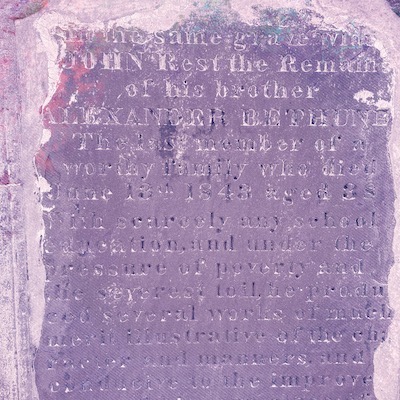 In the same grave with
JOHN Rest the Remains
of his brother
ALEXANDER BETHUNE
The last member of a
worthy family who died
June 13th 1843 aged 38
With scarcely any school
education, and under the
pressure of poverty and
the severest toil, he produ
ced several works of much
merit illustrative of the cha
racter and manners, and
conducive to the improve